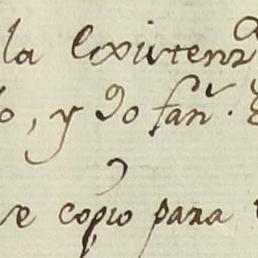 la Existenª
o, y 90 fanˢ.
se copio para